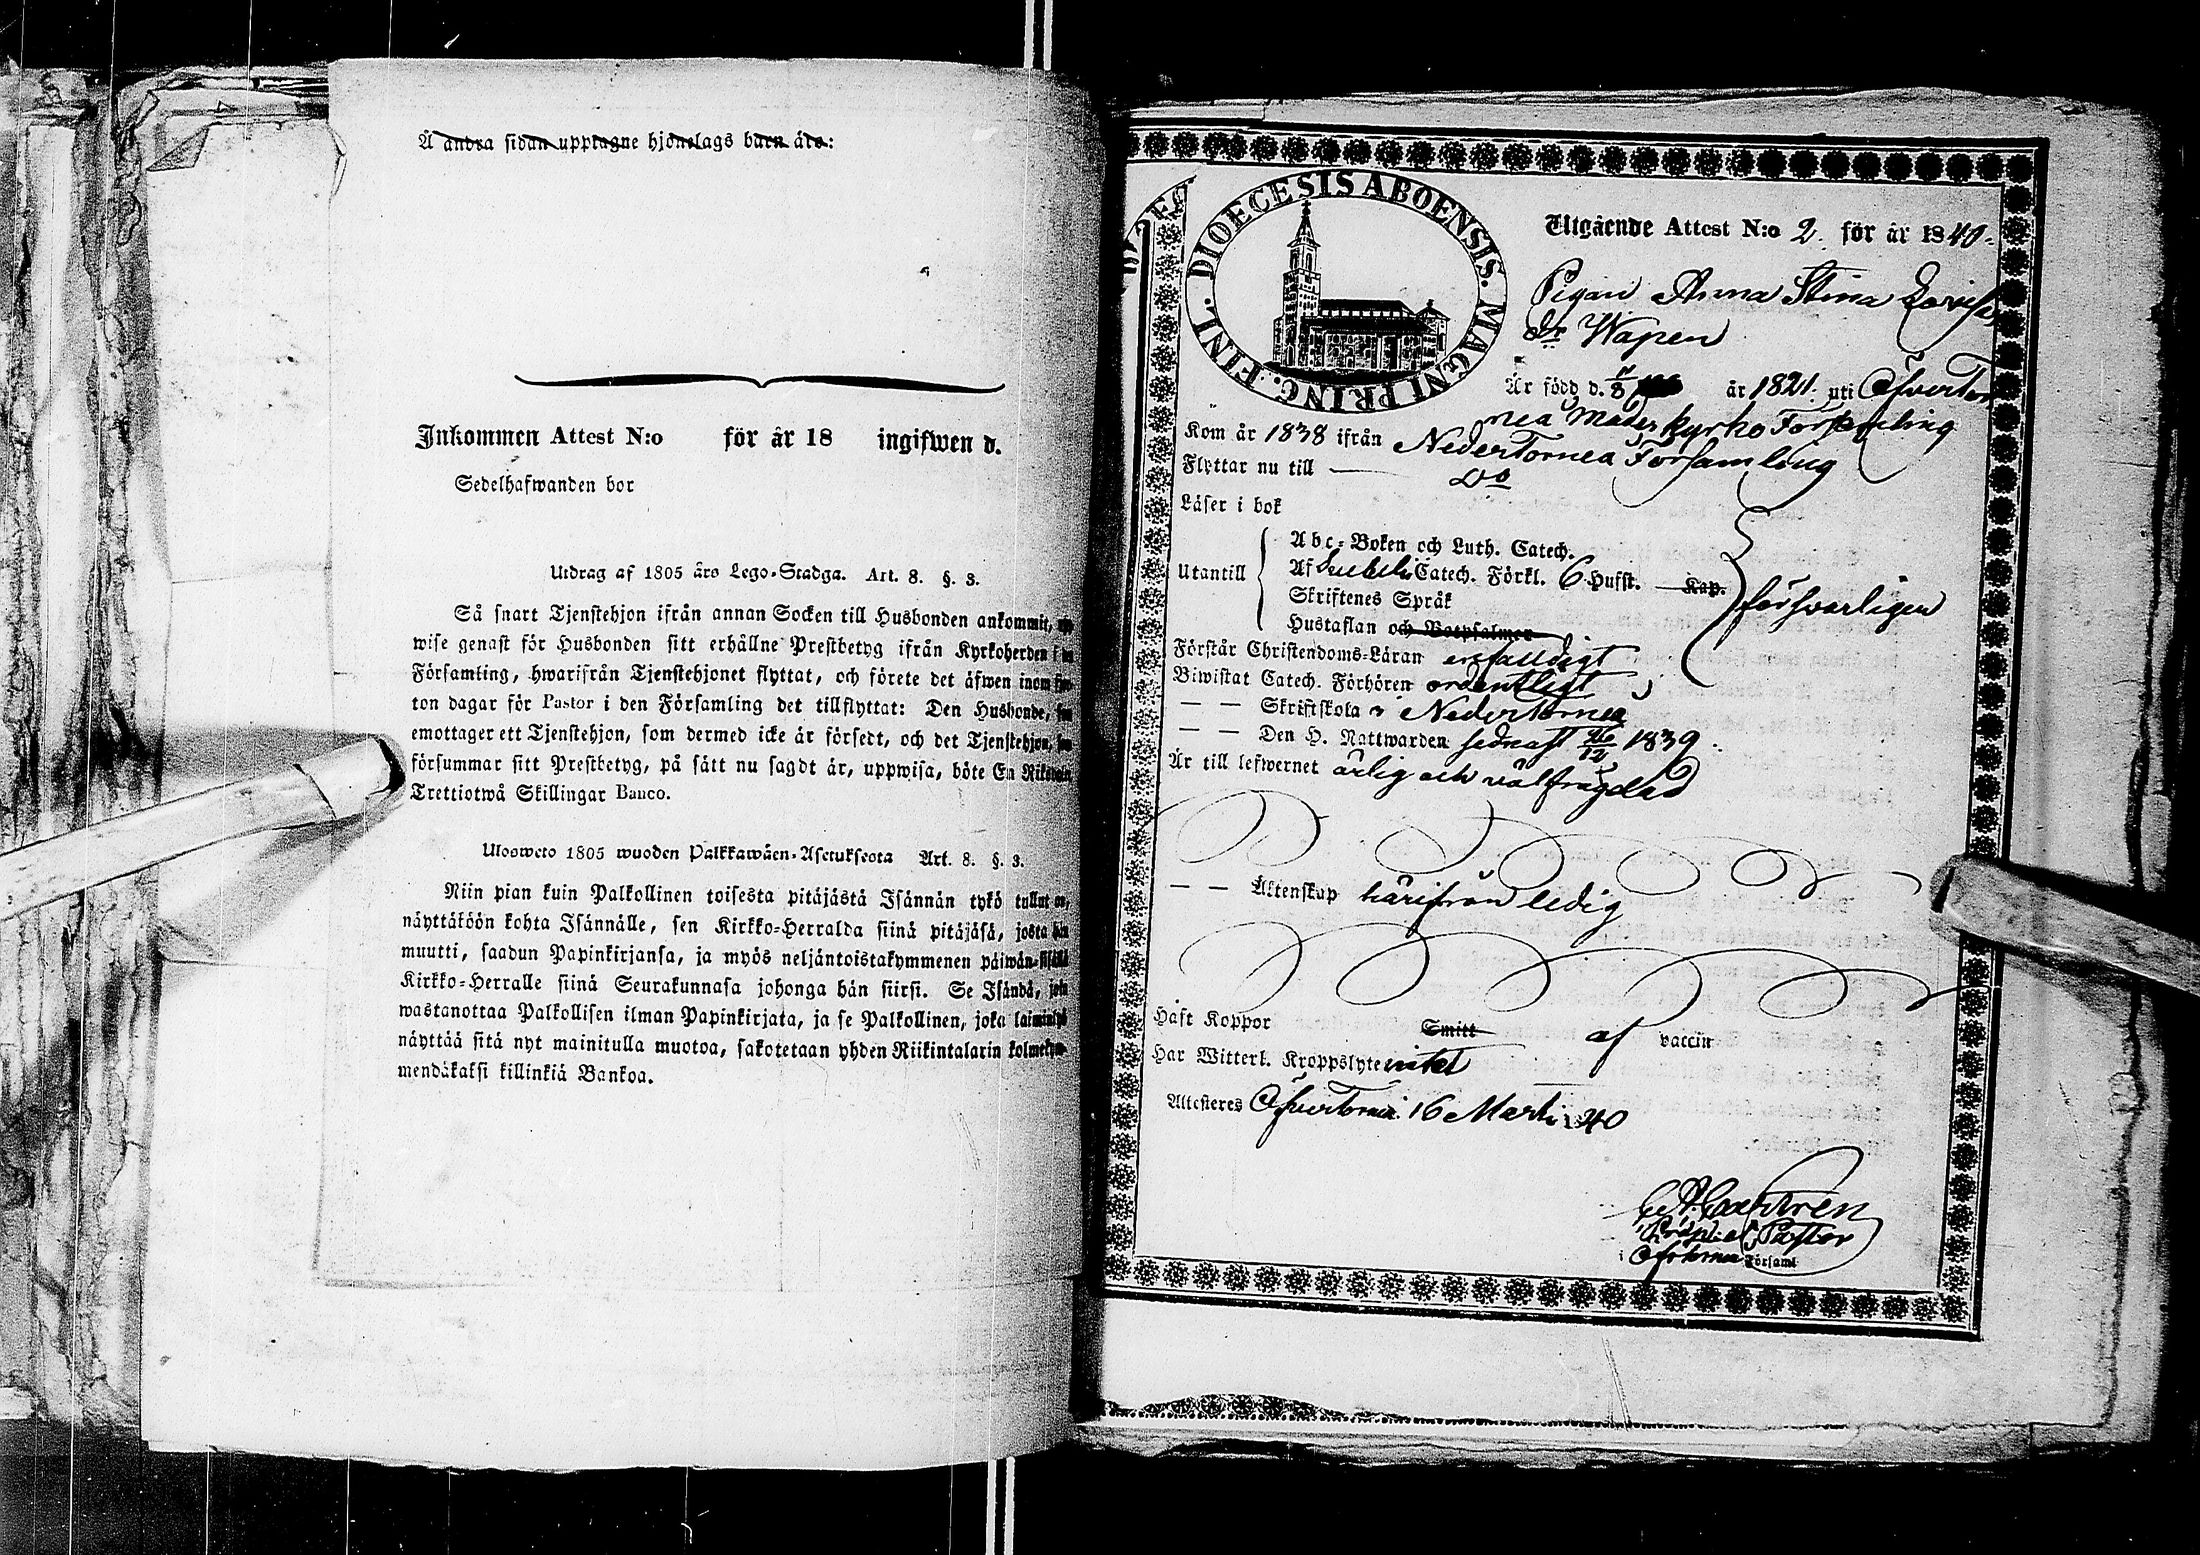 Å andra sidan upptagne hjonelags barn äro:
Inkommen Attest N:o för år 18 ingifwen d.
Sedelhafwanden bor
Utdrag af 1805 års Lego-Stadga. Art. 8. §. 3.
Så snart Tjenstehjon ifrån annan Socken till Husbonden ankommit,
wise genast för Husbonden sitt erhållne Prestbetyg ifrån Kyrkoherden i
Församling, hwarifrån Tjenstehjonet flyttat, och förete det äfwen inom
ton dagar för Pastor i den Församling det tillflyttat: Den Husbonde,
emottager ett Tjenstehjon, som dermed icke är försedt, och det Tjenstehjon,
försummar sitt Prestbetyg, på sätt nu sagdt är, uppwisa, böte En Riksdaler
Trettiotwå Skillingar Banco.
Ulosweto 1805 wuoden Palkkawäen-Asetuksesta Art. 8. §. 3.
Niin pian kuin Palkollinen toisesta pitäjästä Isännän tykö tullut on,
näyttäköön kohta Isännälle, sen Kirkko-Herralda siinä pitäjäsä, josta hän
muutti, saadun Papinkirjansa, ja myös neljäntoistakymmenen päiwän sisällä
Kirkko-Herralle siinä Seurakunnasa johonga hän siirsi. Se Isändä, joka
wastanottaa Palkollisen ilman Papinkirjata, ja se Palkollinen, joka laiminlyö
näyttää sitä nyt mainitulla muotoa, sakotetaan yhden Riikintalarin kolmekym-
mendäkaksi killinkiä Bankoa.
DIOECESIS ABOENSIS. MAGNI PRINC. FINL.
Utgående Attest N:o 2. för år 1840.
Pigan Anna Stina Lovisa
dr Wapen
Är född d. 8 år 1821. uti Öfvertor
neå Moderkyrko Församling
Kom år 1838 ifrån NederTorneå Församling
Flyttar nu till — Do
Läser i bok
Abc-Boken och Luth. Catech.
Utantill Af Catech. Förkl. 6 Hufst. Kap. försvarligen
Skriftenes Språk
Hustaflan och Botpsalmer
Förstår Christendoms-Läran enfaldigt
Biwistat Catech. Förhören ordentligt
— — Skriftskola i Nedertorneå
— — Den H. Nattwarden sednast 26/12 1839.
Är till lefwernet ärlig och välfrägdad
— — Äktenskap härifrån ledig
Haft Koppor Smitt af vaccin
Har Witterl. Kroppslyte intet
Attesteres Öfvertorneå 16 Martii 1840
Castrén
Pastor
i Öfvertorneå Församl.